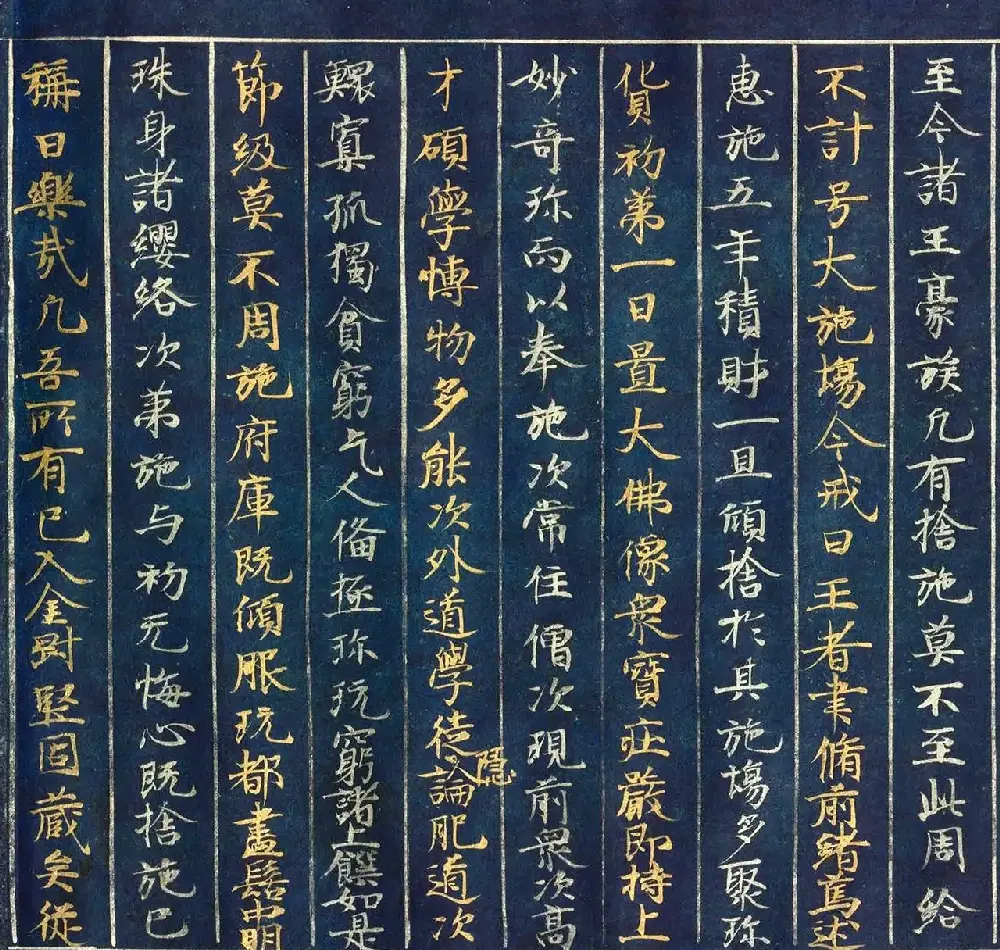 至今諸王豪族凡有捨施莫不至此周給
不計号大施塲今戒日王者聿脩前緒篤述
惠施五年積財一旦傾捨於其施塲多聚珎
貨初第一日置大佛像衆寳庄嚴即持上
妙奇珎而以奉施次常住僧次現前衆次高
才碩學慱物多能次外道學徒隱論肥遁次
鰥寡孤獨貧窮乞人俻極珎玩窮諸上饌如是
節級莫不周施府庫既傾服玩都盡髻中明
珠身諸纓絡次第施与初无悔心既捨施已
稱曰樂哉凡吾所有已入金對堅固蔵矣從